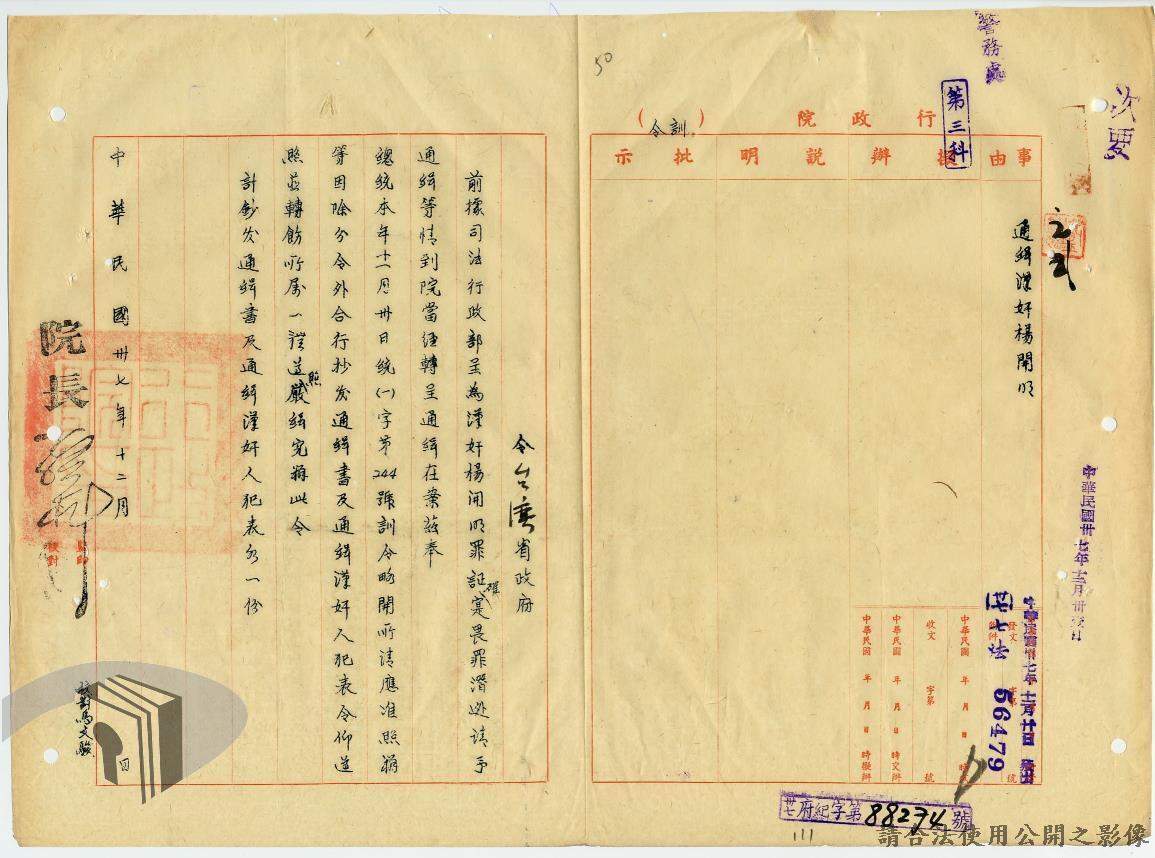 警務處
第三科
50
行政院
(訓令)
事由
擬辦
說明
批示
通緝漢奸楊開明
中華民國卅七年十二月卅
中華民國卅七年十二月廿日
卅七法 56479
發文 字第 號
附件
中華民國 年 月 日 時
收文 字第 號
中華民國 年 月 日 時交辦
中華民國 年 月 日 時擬辦
卅七府紀字第88274號
令台灣省政府
前據司法行政部呈為漢奸楊開明罪証確寔畏罪潛逃請予
通緝等情到院當經轉呈通緝在案茲奉
總統本年十一月卅日統(一)字第244號訓令略開所請應准照辦
等因除分令外合行抄发通緝書及通緝漢奸人犯表令仰遵
照並轉飭所屬一體遵照嚴緝究辦此令
計鈔发通緝書及通緝漢奸人犯表各一份
中華民國卅七年十二月
日
院長
監印
校對
校對馮文驥
請合法使用公開之影像